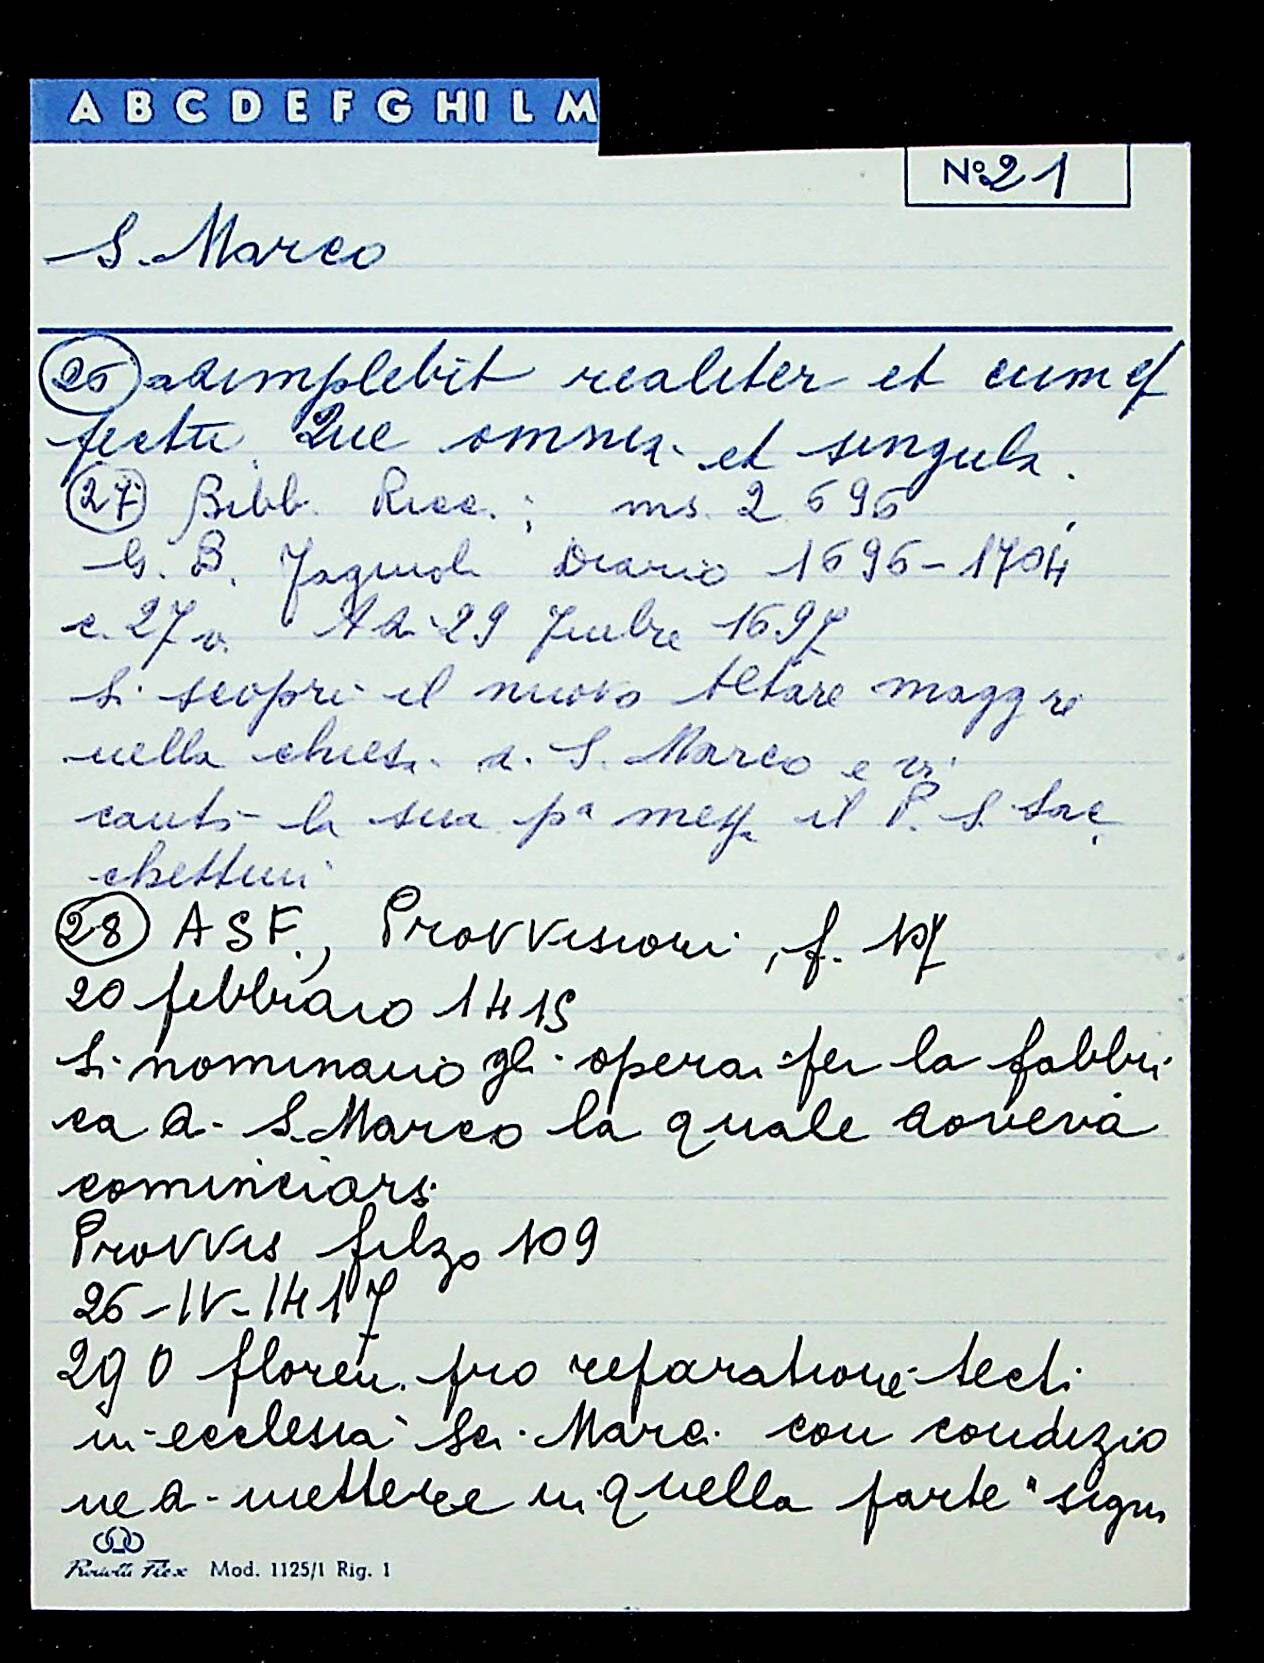 A B C D E F G HI L M
No 21
S. Marco
26 adimplebit realiter et cum ef
fectu. Que omnia et singula.
27 Bibl. Ricc.; ms. 2696,
G. B. Fagiuoli Diario 1696-1704
c. 27v. A di 29 7mbre 1697
si scoprì il nuovo Altare magg re
nella chiesa di S. Marco e vi
cantò la sua pa messa il P. S. Sac
chettini
28 ASF., Provvisioni, f. 107
20 febbraio 1415
Si nominano gli operai per la fabbri
ca di S. Marco la quale doveva
cominciarsi
Provvis filza 109
26-IV-1417
290 floren. pro reparatione tecti
in ecclesia Sci. Marci con condizio
ne di mettere in quella parte "signi
Mod. 1125/1 Rig. 1